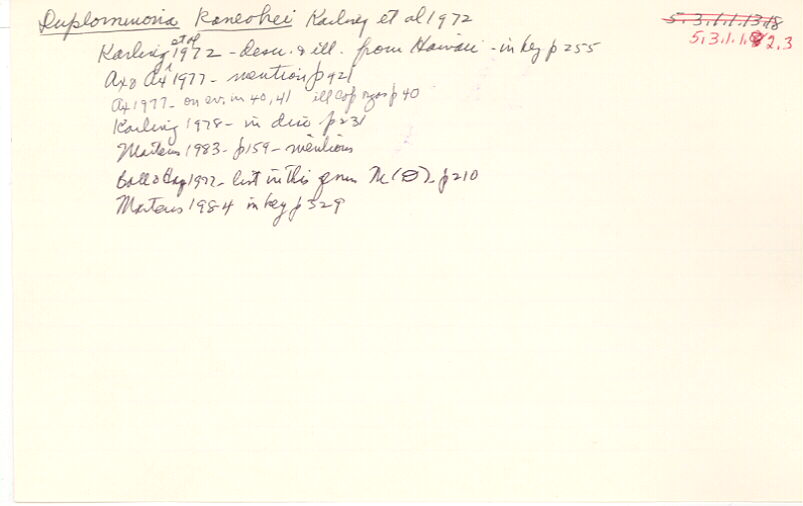 Duplominona kaneohei Karling et al 1972
5.3.1.1.13.18
5.3.1.1.92.3
Karling et al 1972 - descr. & ill. from Hawaii - in key p 255
Ax & Ax 1977 - mention p 421
Ax 1977 - on ev. in 40, 41 ill cop orgs p 40
Karling 1978 - in disc p 231
Martens 1983 - p 159 - mentions
Ball & Hag 1977 - list in this genus p 210
Martens 1984 in key p 329